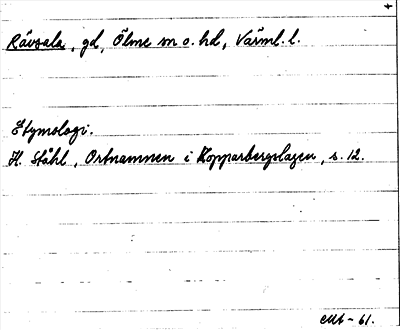 Rävsala, gd, Ölme sn o. hd, Värml. l.
Etymologi.
H. Ståhl, Ortnamnen i Kopparbergslagen, s. 12.